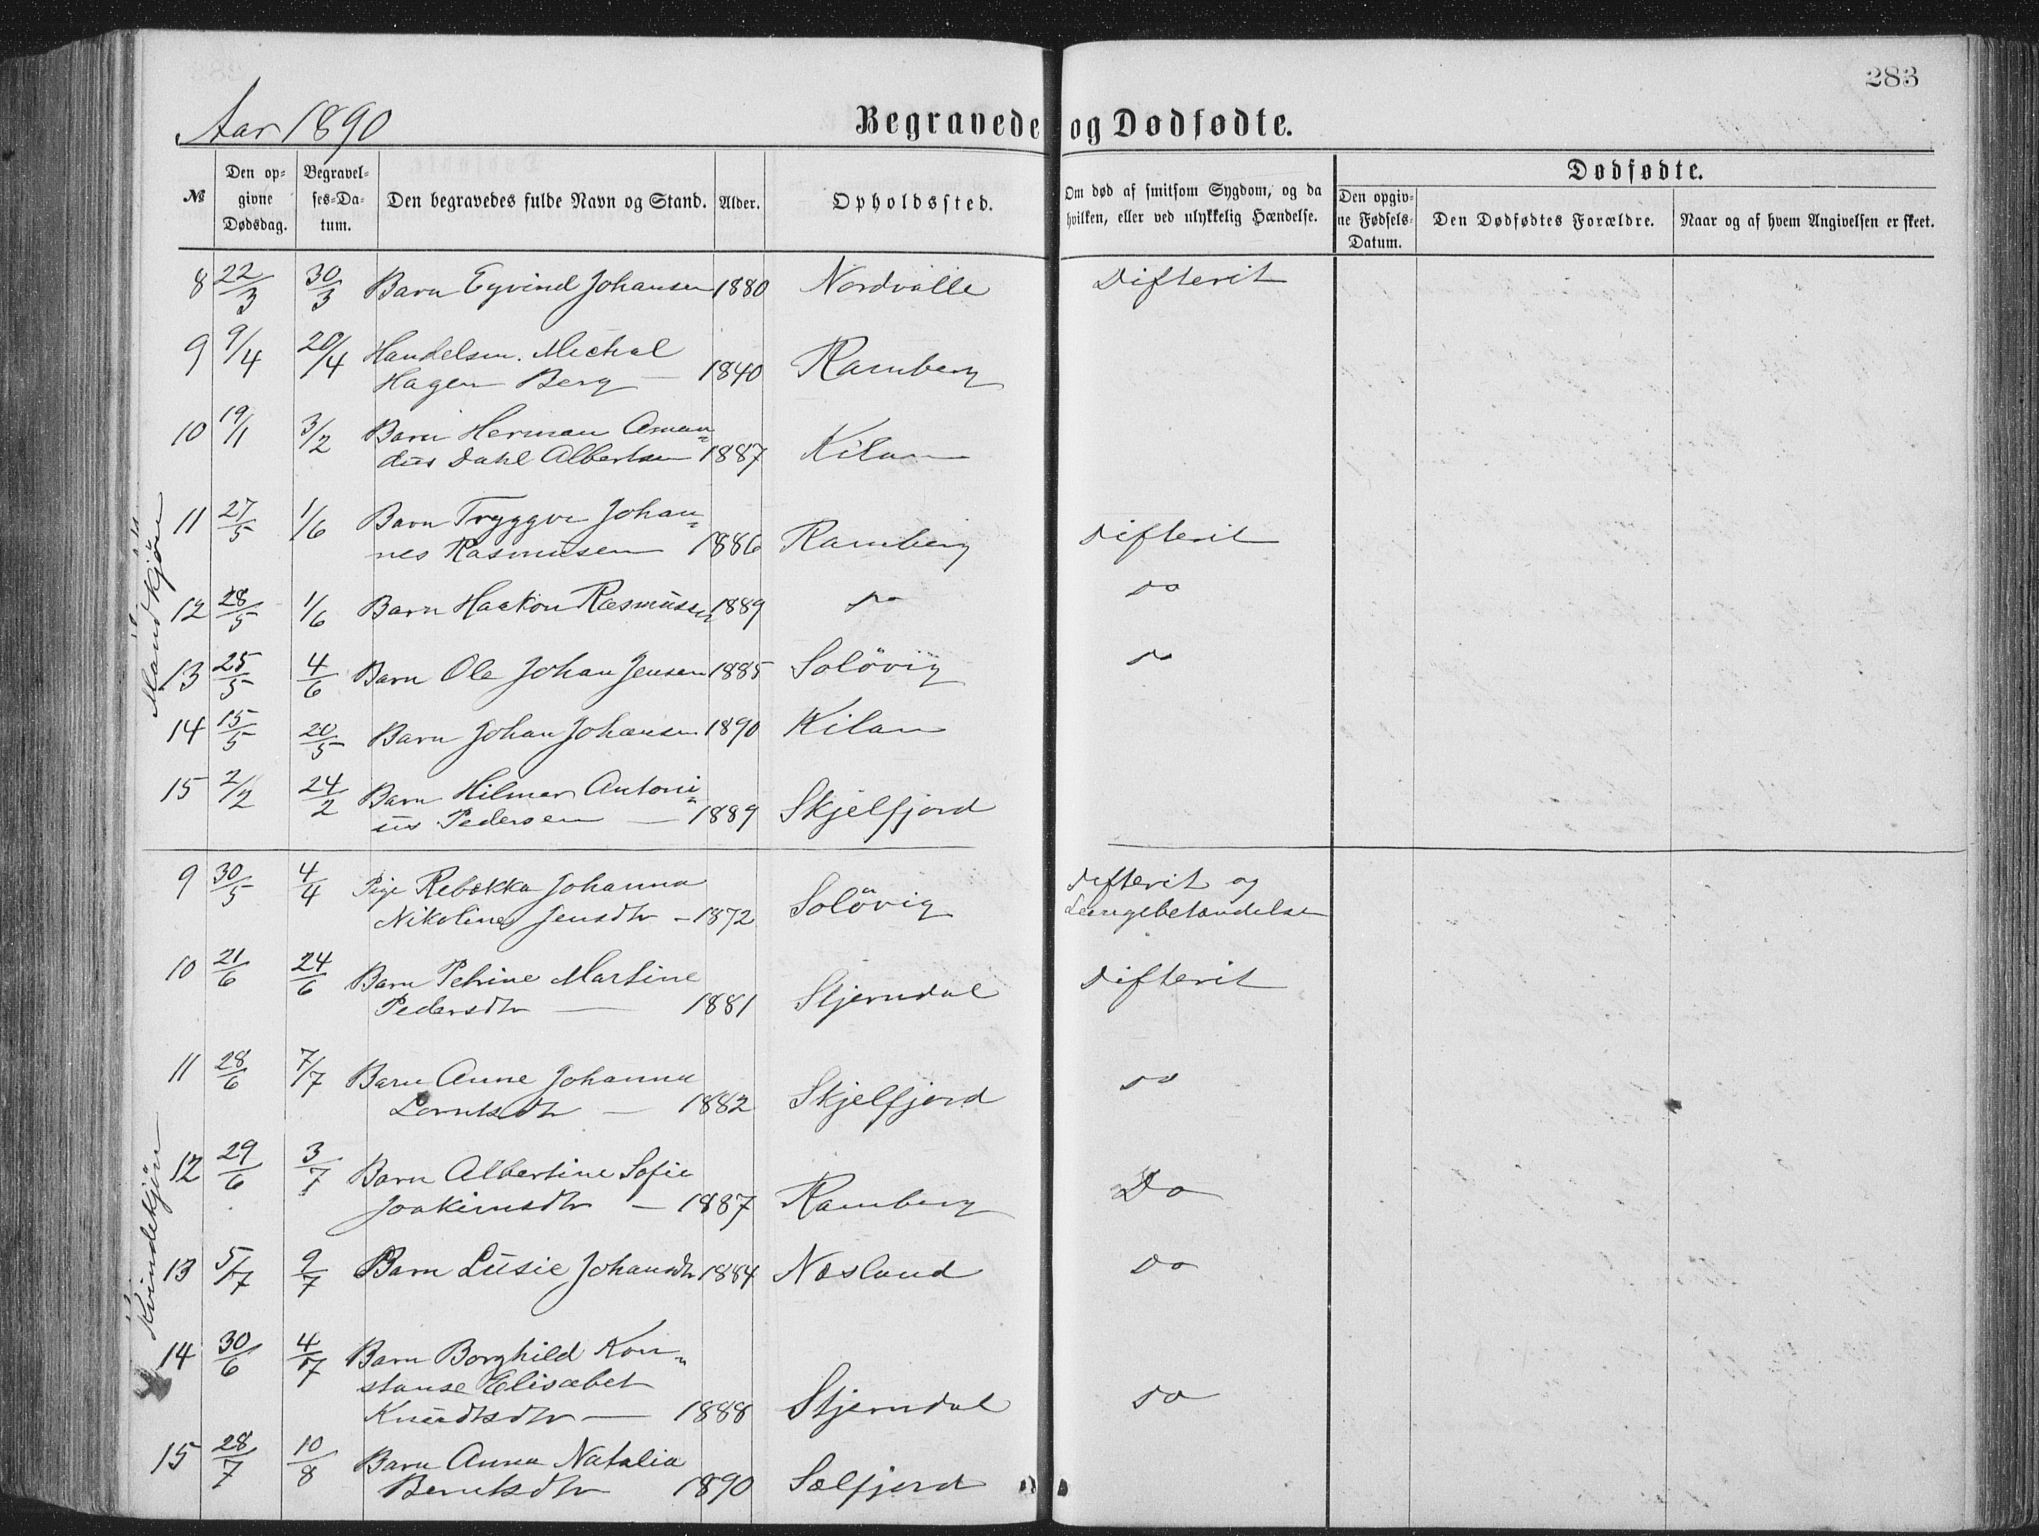 283
Aar 1890
Begravede og Dødfødte.
№
Den opgivne Dødsdag.
Begravelses-Datum.
Den begravedes fulde Navn og Stand.
Alder.
Opholdssted.
Om død af smitsom Sygdom, og da hvilken, eller ved ulykkelig Hændelse.
Dødfødte.
Den opgivne Fødsels-Datum.
Den Dødfødtes Forældre.
Naar og af hvem Angivelsen er skeet.
Mandkjøn
8 22/3 30/3 Barn Eyvind Johansen 1880 Nordvälle Difterit
9 9/4 20/4 Handelsm. Michal
Hagen Berg — 1840 Ramberg
10 19/1 3/2 Barn Herman Aman-
dus Dahl Albertsen 1887 Kilan
11 27/5 1/6 Barn Tryggve Johan-
nes Rasmusen 1886 Ramberg Difterit
12 28/5 1/6 Barn Haakon Rasmussen 1889 do do
13 25/5 4/6 Barn Ole Johan Jensen 1885 Solövig do
14 15/5 20/5 Barn Johan Johansen 1890 Kilan
15 2/2 24/2 Barn Hilmar Antoni-
us Pedersen — 1889 Skjelfjord
Kvindekjön
9 30/5 4/4 Pige Rebekka Johanna Difterit og
Nikoline Jensdtr - 1872 Solövig Lungebetændelse
10 21/6 24/6 Barn Petrine Martine Difterit
Pedersdtr — 1881 Stjerndal
11 28/6 7/7 Barn Anne Johanna do
Lorntsdtr — 1882 Skjelfjord
12 29/6 3/7 Barn Albertine Sofie
Joakimsdtr — 1887 Ramberg Do
13 5/7 9/7 Barn Lusie Johansdtr 1884 Næsland Do
14 30/6 4/7 Barn Borghild Kon-
stanse Elisabet
Knudtsdtr — 1888 Stjerndal do
15 28/7 10/8 Barn Anna Natalia
Berntsdtr 1890 Sælfjord